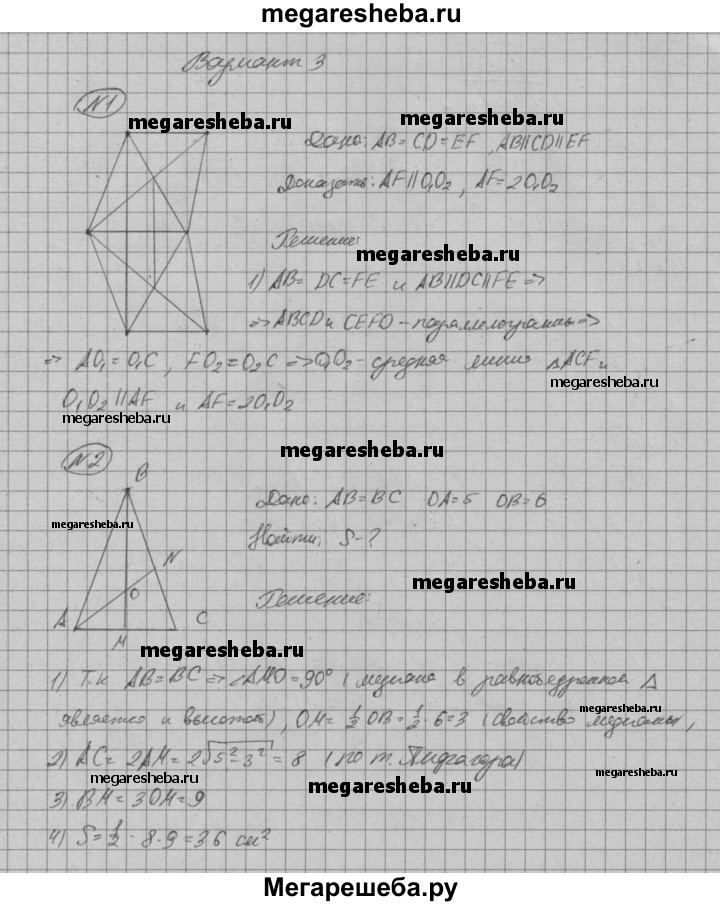 megaresheba.ru
Вариант 3
N1
megaresheba.ru
megaresheba.ru
Дано: AB = CD = EF, AB||CD||EF
Доказать: AF||O₁O₂, AF = 2O₁O₂
Решение:
megaresheba.ru
1) AB = DC = FE и AB||DC||FE =>
=> ABCD и CEFD - параллелограммы =>
=> AO₁ = O₁C, FO₂ = O₂C => O₁O₂ - средняя линия △ACF и
megaresheba.ru
O₁O₂||AF и AF = 2O₁O₂
megaresheba.ru
N2
megaresheba.ru
B
Дано: AB = BC OA = 5 OB = 6
megaresheba.ru
Найти: S - ?
N
megaresheba.ru
O
Решение:
A
C
M
megaresheba.ru
1) Т.к AB = BC => ∠AMO = 90° (медиана в равнобедренном △
является и высотой), OM = 1/2 OB = 1/2 · 6 = 3 (свойство медианы),
2) AC = 2AM = 2√5² - 3² = 8 (по т. Пифагора)
megaresheba.ru
megaresheba.ru
megaresheba.ru
3) BM = 3OM = 9
4) S = 1/2 · 8 · 9 = 36 см²
Мегарешеба.ру